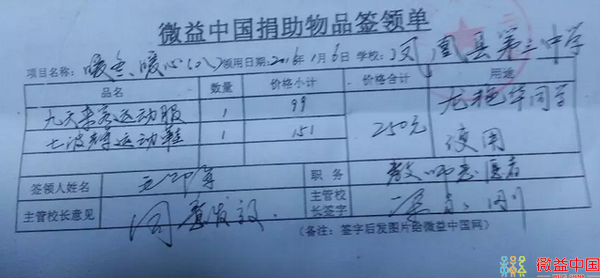 微益中国捐助物品签领单
项目名称：暖冬、暖心(二八) 领用日期：2016年1月6日 学校：凤凰县第三中学
品名 数量 价格小计 价格合计 用途
九天来客运动服 1 99 250元 龙艳华同学
七波辉运动鞋 1 151 使用
签领人姓名 职务 教师志愿者
主管校长意见 同意发放 主管校长签字
（备注：签字后发图片给微益中国网）
微益中国